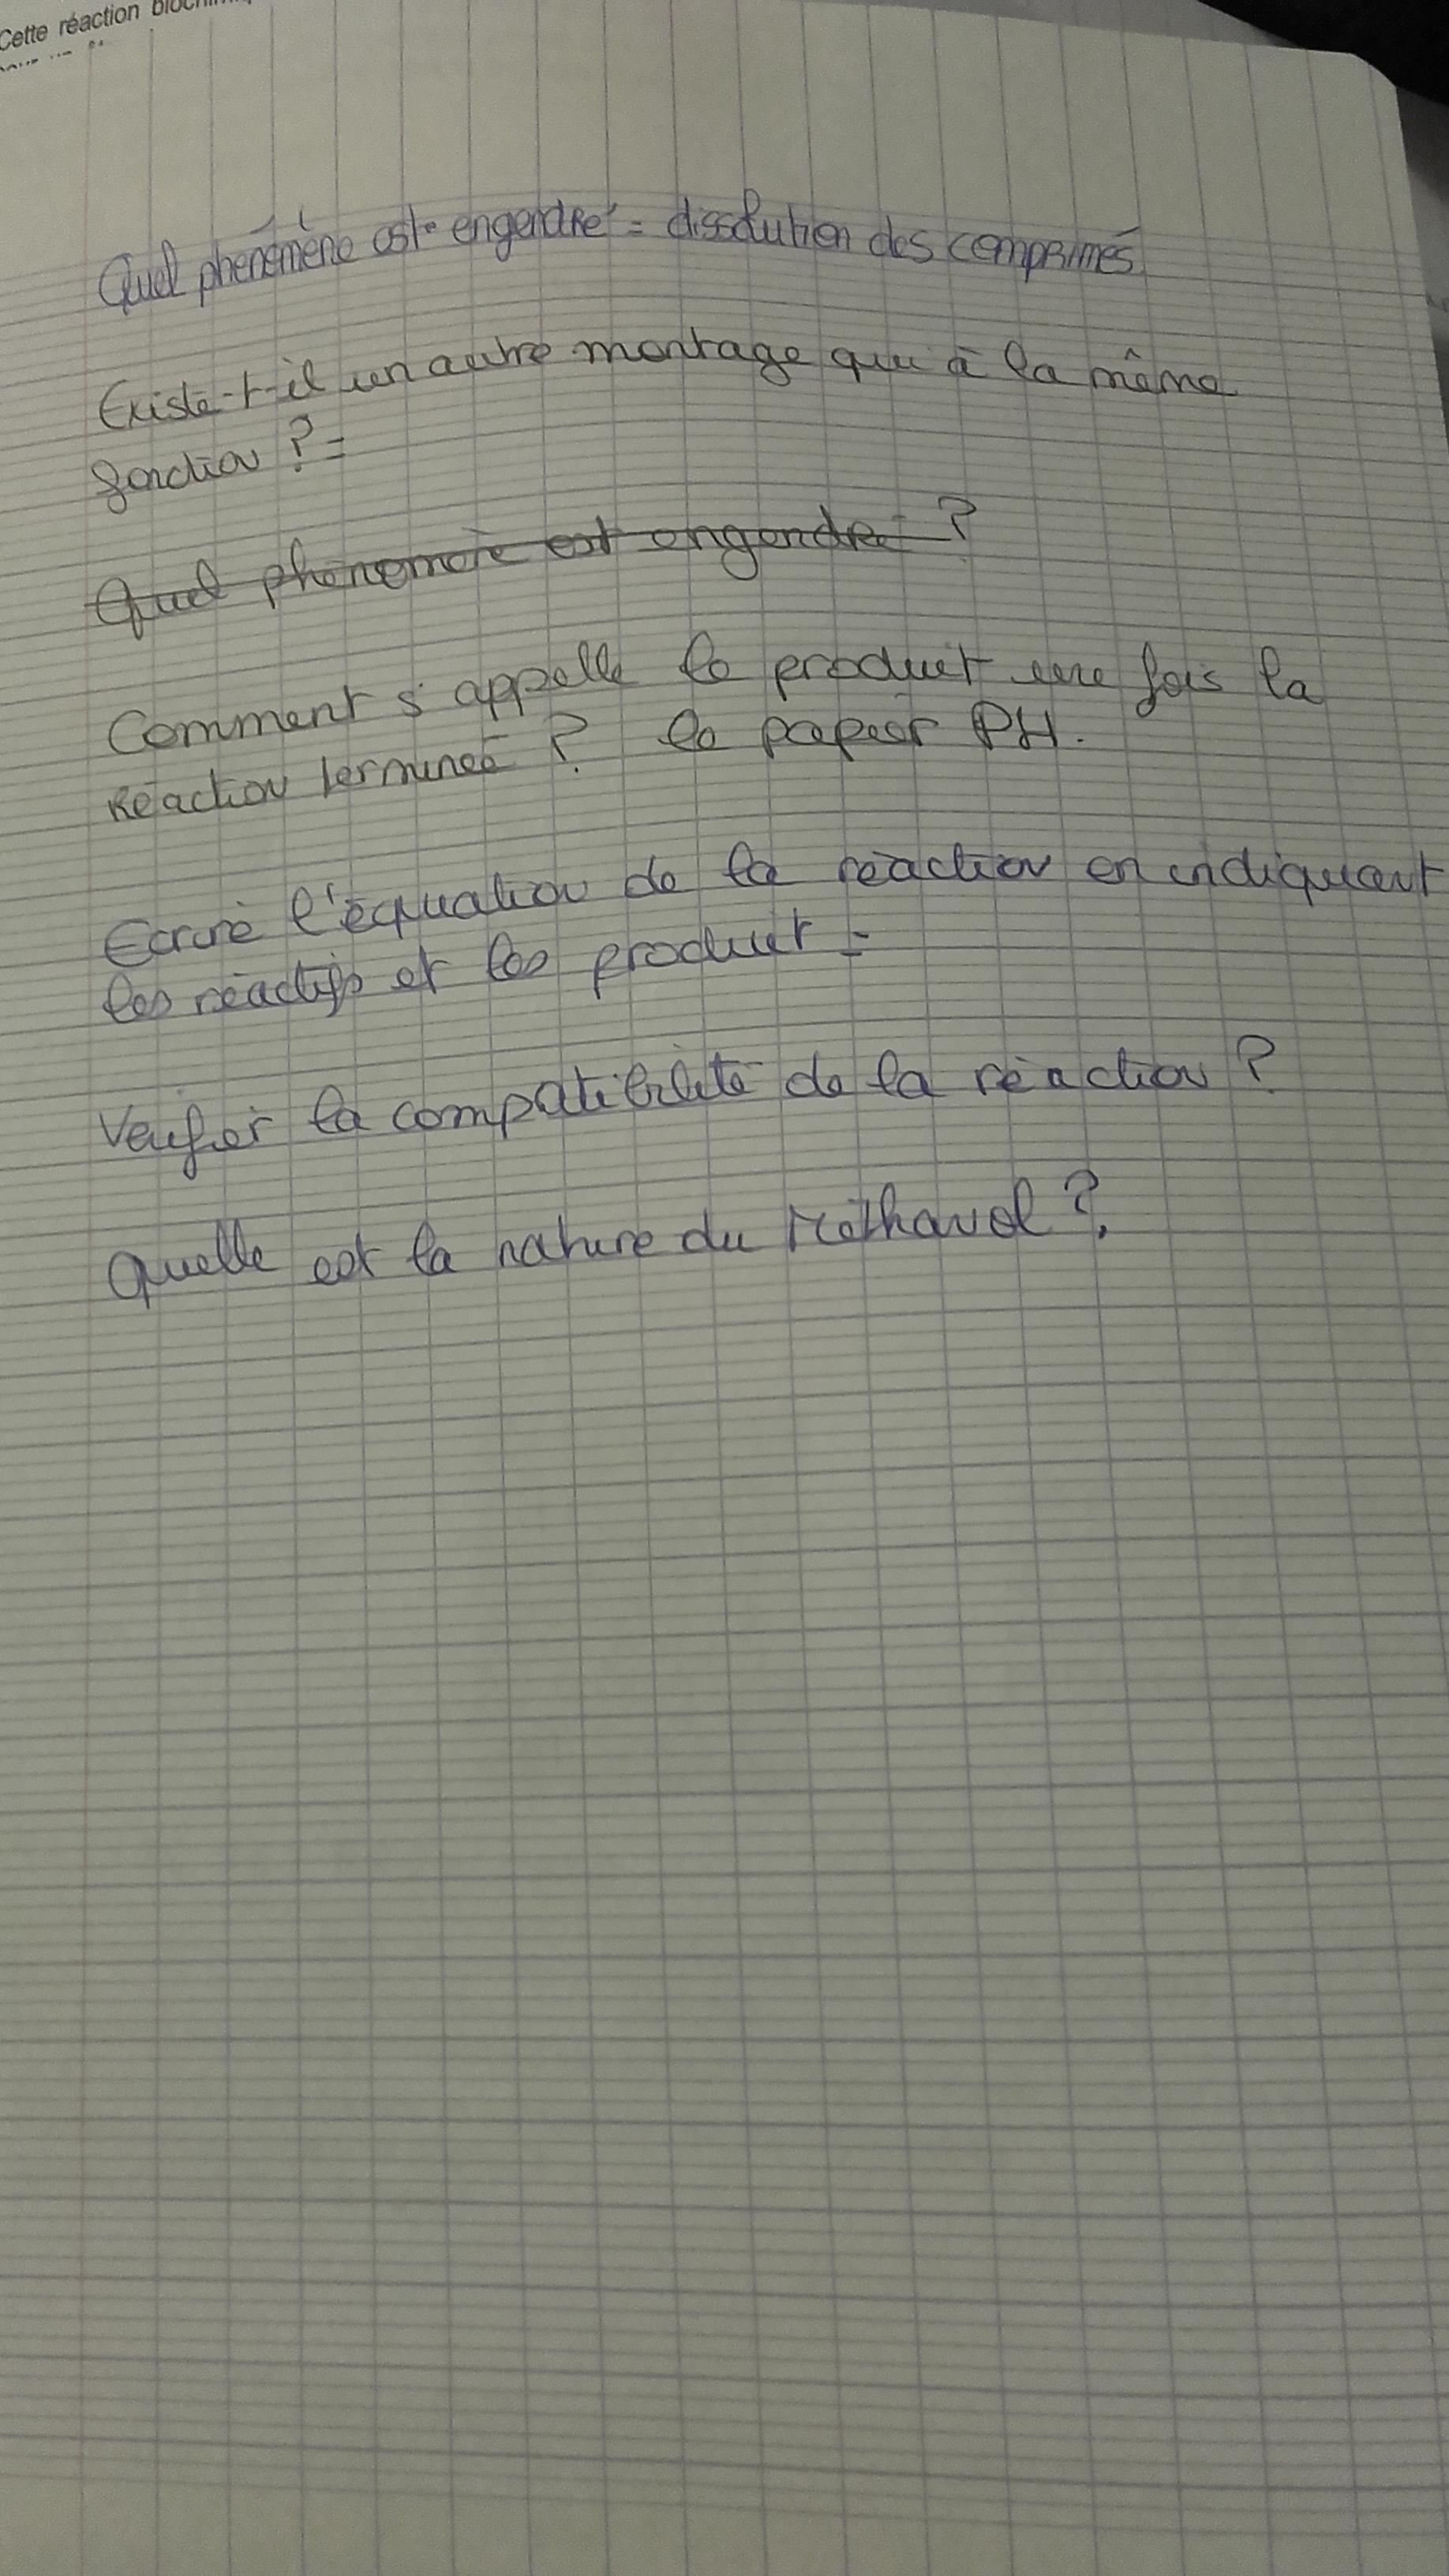 Cette réaction
Quel phénomène est engendré = dissolution des comprimés
Existe-t-il un autre montage qui à la même
fonction ? =
Quel phenomène est engendré ?
Comment s'appelle le produit une fois la
Réaction terminée ? le papier PH.
Ecrire l'équation de la réaction en indiquant
les réactifs et les produit =
Verifier la compatibilité de la réaction ?
Quelle est la nature du Méthanol ?